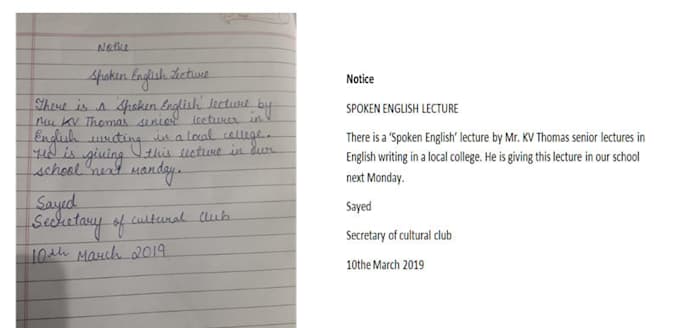 Notice
Spoken English Lecture
There is a 'Spoken English' lecture by
Mr. KV Thomas senior lecturer in
English writing in a local college.
He is giving this lecture in our
school next Monday.
Sayed
Secretary of cultural club
10th March 2019
Notice
SPOKEN ENGLISH LECTURE
There is a ‘Spoken English’ lecture by Mr. KV Thomas senior lectures in
English writing in a local college. He is giving this lecture in our school
next Monday.
Sayed
Secretary of cultural club
10the March 2019